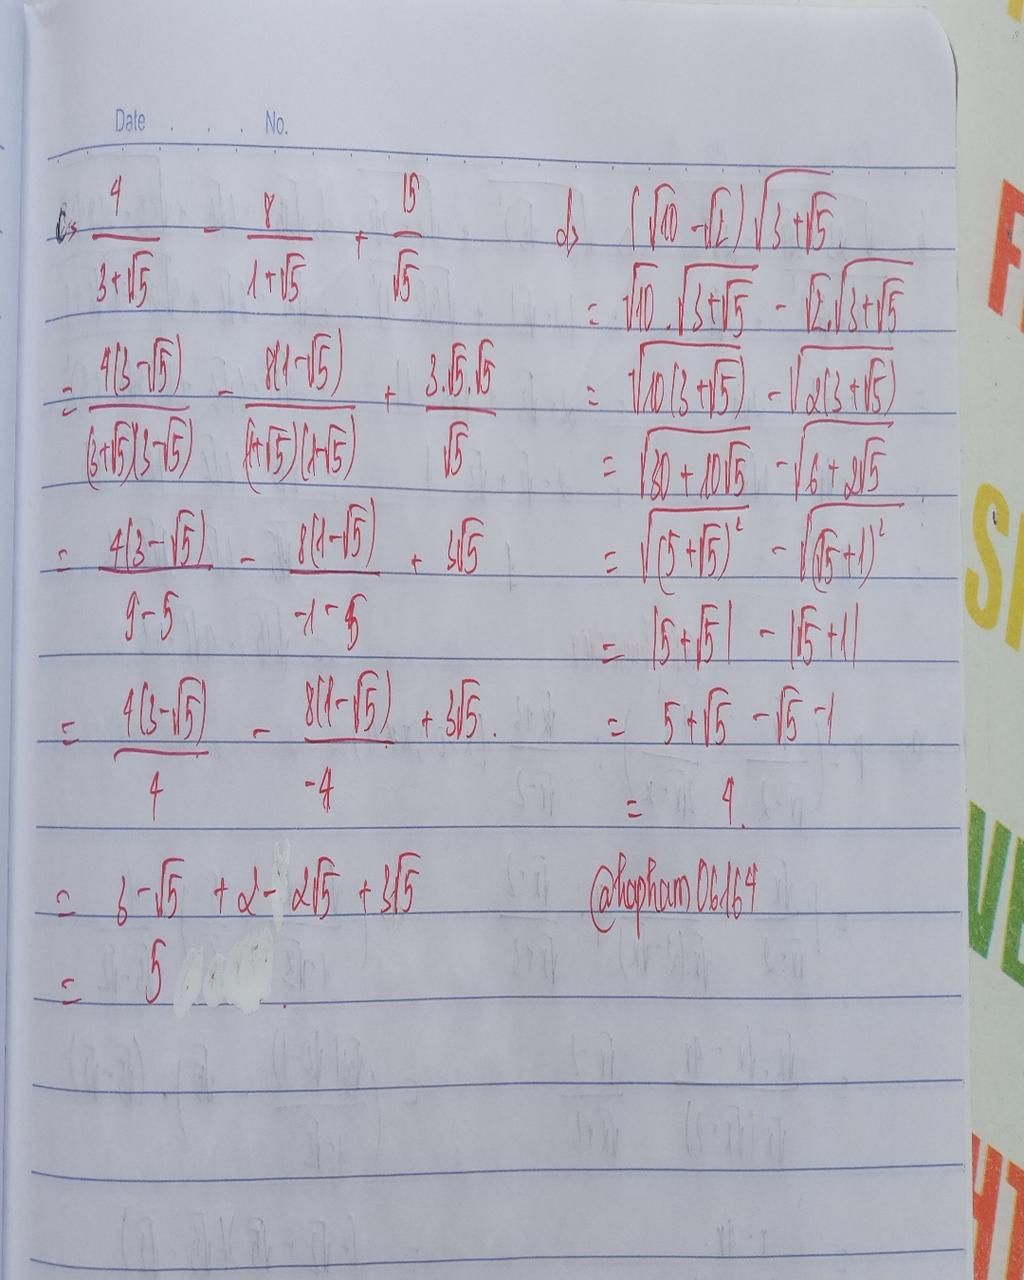 Date . . . No.
c> 4/(3+√5) - 8/(1+√5) + 15/√5
= 4(3-√5)/((3+√5)(3-√5)) - 8(1-√5)/((1+√5)(1-√5)) + 3.√5.√5/√5
= 4(3-√5)/(9-5) - 8(1-√5)/(-1-5) + 3√5
= 4(3-√5)/4 - 8(1-√5)/(-4) + 3√5.
= 3-√5 + 2 - 2√5 + 3√5
= 5 .
d> (√10 - √2)√(3+√5).
= √10.√(3+√5) - √2.√(3+√5)
= √(10(3+√5)) - √(2(3+√5))
= √(30+10√5) - √(6+2√5)
= √((5+√5)²) - √((√5+1)²)
= |5+√5| - |√5+1|
= 5+√5 - √5 -1
= 4.
@hapham06164